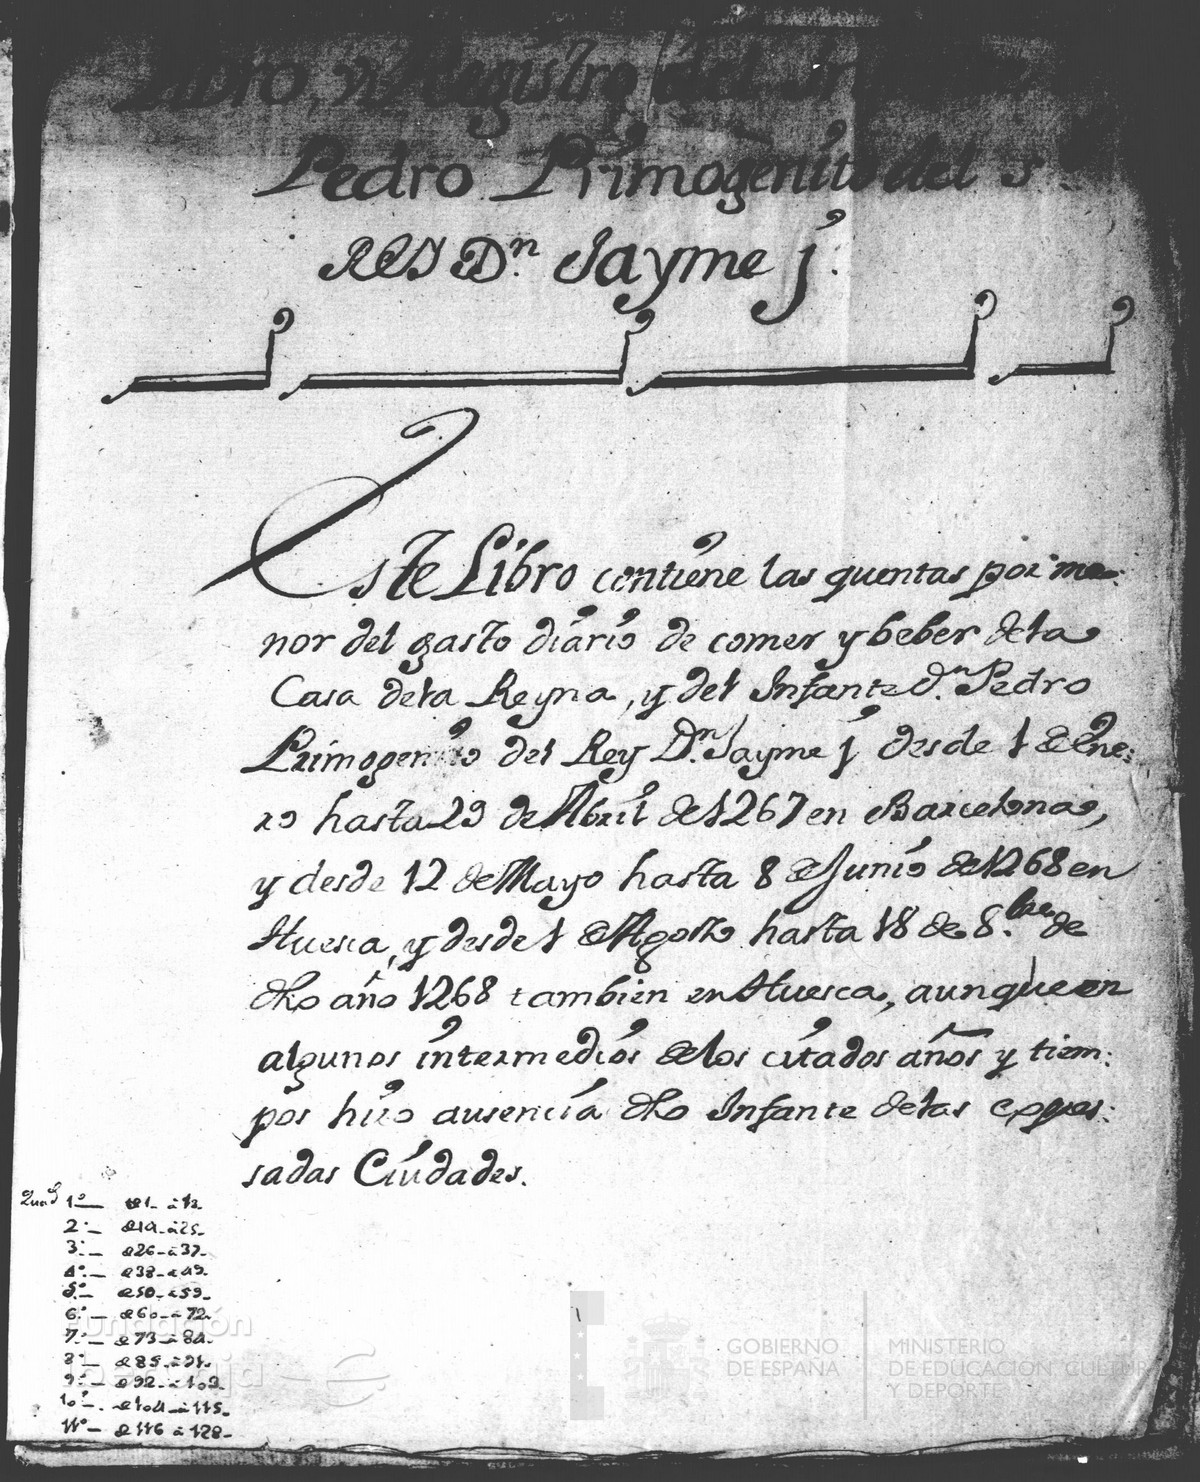 Libro, y Registro del
Pedro Primogenito del S.
REY Dn. Jayme j.
Este Libro contiene las quentas por me-
nor del gasto diario de comer y beber dela
Casa dela Reyna, y del Infante d.n Pedro
Primogenito del Rey Dn. Jayme j desde 1 de Ene:
ro hasta 29 de Abril de 1267 en Barcelona,
y desde 12 de Mayo hasta 8 de Junio de 1268 en
Huesca, y desde 1 de Agosto hasta 18 de 8.bre de
dho año 1268 tambien en Huesca, aunque en
algunos intermedios de los citados años y tiem:
pos hizo ausencia dho Infante delas expres:
sadas Ciudades.
Quad 1º— de 1 - à 13.
2º— de 14 - à 25.
3º— de 26 - à 37.
4º— de 38 - à 49.
5º— de 50 - à 59.
6º— de 60 - à 72.
7º— de 73 - à 84.
8º— de 85 - à 91.
9º— de 92 - à 103.
10º— de 104 - à 115.
11º— de 116 à 128.
Fundación
GOBIERNO
DE ESPAÑA
MINISTERIO
DE EDUCACIÓN, CULTURA
Y DEPORTE